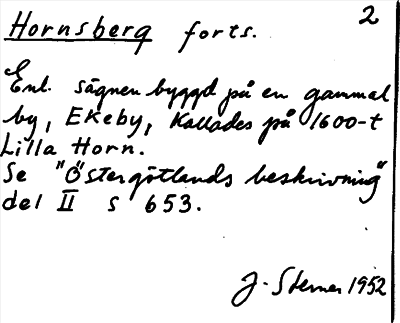 2
Hornsberg forts.
Enl. sägnen byggd på en gammal
by, Ekeby, Kallades på 1600-t
Lilla Horn.
Se "Östergötlands beskrivning"
del II s 653.
J. Sterner 1952